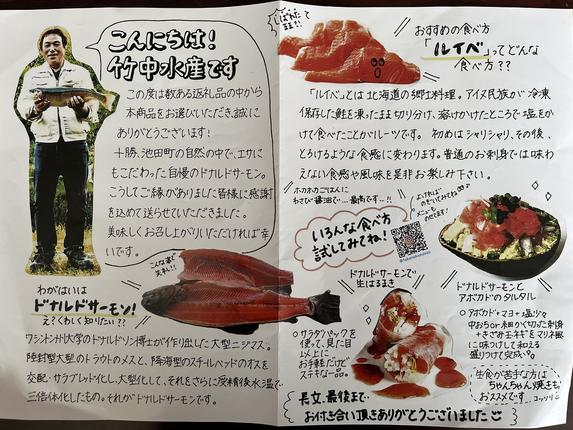 こんにちは!
竹中水産です
この度は数ある返礼品の中から
本商品をお選びいただき、誠に
ありがとうございます!
十勝、池田町の自然の中で、エサに
もこだわった自慢のドナルドサーモン。
こうしてご縁がありました皆様に感謝
を込めて送らせていただきました。
美味しくお召し上がりいただければ幸
いです。
こんな姿で
失礼!!
わがはいは
ドナルドサーモン!
え?くわしく知りたい??
ワシントン州大学のドナルドソン博士が作り出した大型ニジマス。
陸封型大型のトラウトのメスと、降海型のスチールヘッドのオスを
交配・サラブレット化し、大型化して、それをさらに受精後水温で
三倍体化したもの。それがドナルドサーモンです。
しばれた
ます!!
おすすめの食べ方
「ルイベ」ってどんな
食べ方??
「ルイベ」とは北海道の郷土料理。アイヌ民族が冷凍
保存した鮭を凍ったまま切り分け、溶けかけたところで塩をか
けて食べたことがルーツです。初めはシャリシャリ、その後、
とろけるような食感に変わります。普通のお刺身では味わ
えない食感や風味を是非お楽しみ下さい。
ホカホカごはんに
わさび醤油で…最高です…!!
いろんな食べ方
試してみてね!
よければ
のぞいてみてね
メニュー
のせてます!
ドナルドサーモンで
生はるまき
○サラダパックを
使って、見た目
以上に
お手軽だけど
ステキな一品。
ドナルドサーモンと
アボカドのタルタル
○アボカド+マヨ+塩少々
中おちor細かく切った刺身
+きざみ玉ネギをマリネ風
に味つけして和える
盛りつけて完成
生食が苦手な方は
ちゃんちゃん焼きも
おススメです…コッソリ
長文、最後まで
お付き合い頂きありがとうございました